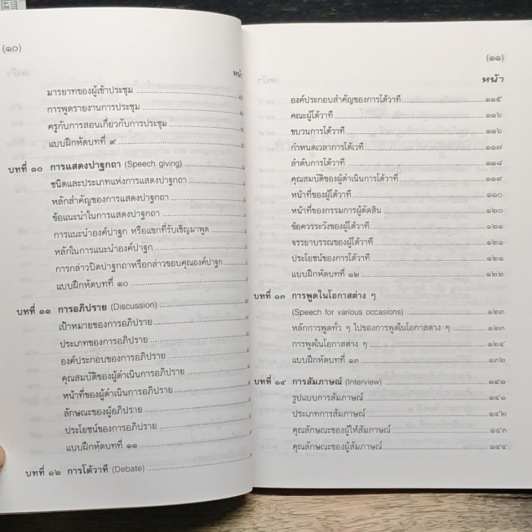 (๑๐)
หน้า
มารยาทของผู้เข้าประชุม
การพูดรายงานการประชุม
ครูกับการสอนเกี่ยวกับการประชุม
แบบฝึกหัดบทที่ ๙
บทที่ ๑๐ การแสดงปาฐกถา (Speech giving)
ชนิดและประเภทแห่งการแสดงปาฐกถา
หลักสำคัญของการแสดงปาฐกถา
ข้อแนะนำในการแสดงปาฐกถา
การแนะนำองค์ปาฐก หรือแขกที่รับเชิญมาพูด
หลักในการแนะนำองค์ปาฐก
การกล่าวปิดปาฐกถาหรือกล่าวขอบคุณองค์ปาฐก
แบบฝึกหัดบทที่ ๑๐
บทที่ ๑๑ การอภิปราย (Discussion)
เป้าหมายของการอภิปราย
ประเภทของการอภิปราย
องค์ประกอบของการอภิปราย
คุณสมบัติของผู้ดำเนินการอภิปราย
หน้าที่ของผู้ดำเนินการอภิปราย
ลักษณะของผู้อภิปราย
ประโยชน์ของการอภิปราย
แบบฝึกหัดบทที่ ๑๑
บทที่ ๑๒ การโต้วาที (Debate)
(๑๑)
หน้า
องค์ประกอบสำคัญของการโต้วาที ๑๑๕
คณะผู้โต้วาที ๑๑๖
ขบวนการโต้วาที ๑๑๖
กำหนดเวลาการโต้เวที ๑๑๗
ลำดับการโต้วาที ๑๑๘
คุณสมบัติของผู้ดำเนินการโต้วาที ๑๑๙
หน้าที่ของผู้โต้วาที ๑๑๐
หน้าที่ของกรรมการผู้ตัดสิน ๑๒๐
ข้อควรระวังของผู้โต้วาที ๑๒๑
จรรยาบรรณของผู้โต้วาที ๑๒๑
ประโยชน์ของการโต้วาที ๑๒๑
แบบฝึกหัดบทที่ ๑๒ ๑๒๒
บทที่ ๑๓ การพูดในโอกาสต่าง ๆ
(Speech for various occasions) ๑๒๓
หลักการพูดทั่ว ๆ ไปของการพูดในโอกาสต่าง ๆ ๑๒๓
การพูดในโอกาสต่าง ๆ ๑๒๔
แบบฝึกหัดบทที่ ๑๓ ๑๓๙
บทที่ ๑๔ การสัมภาษณ์ (Interview) ๑๔๑
รูปแบบการสัมภาษณ์ ๑๔๑
ประเภทการสัมภาษณ์ ๑๔๒
คุณลักษณะของผู้ให้สัมภาษณ์ ๑๔๓
คุณลักษณะของผู้สัมภาษณ์ ๑๔๔